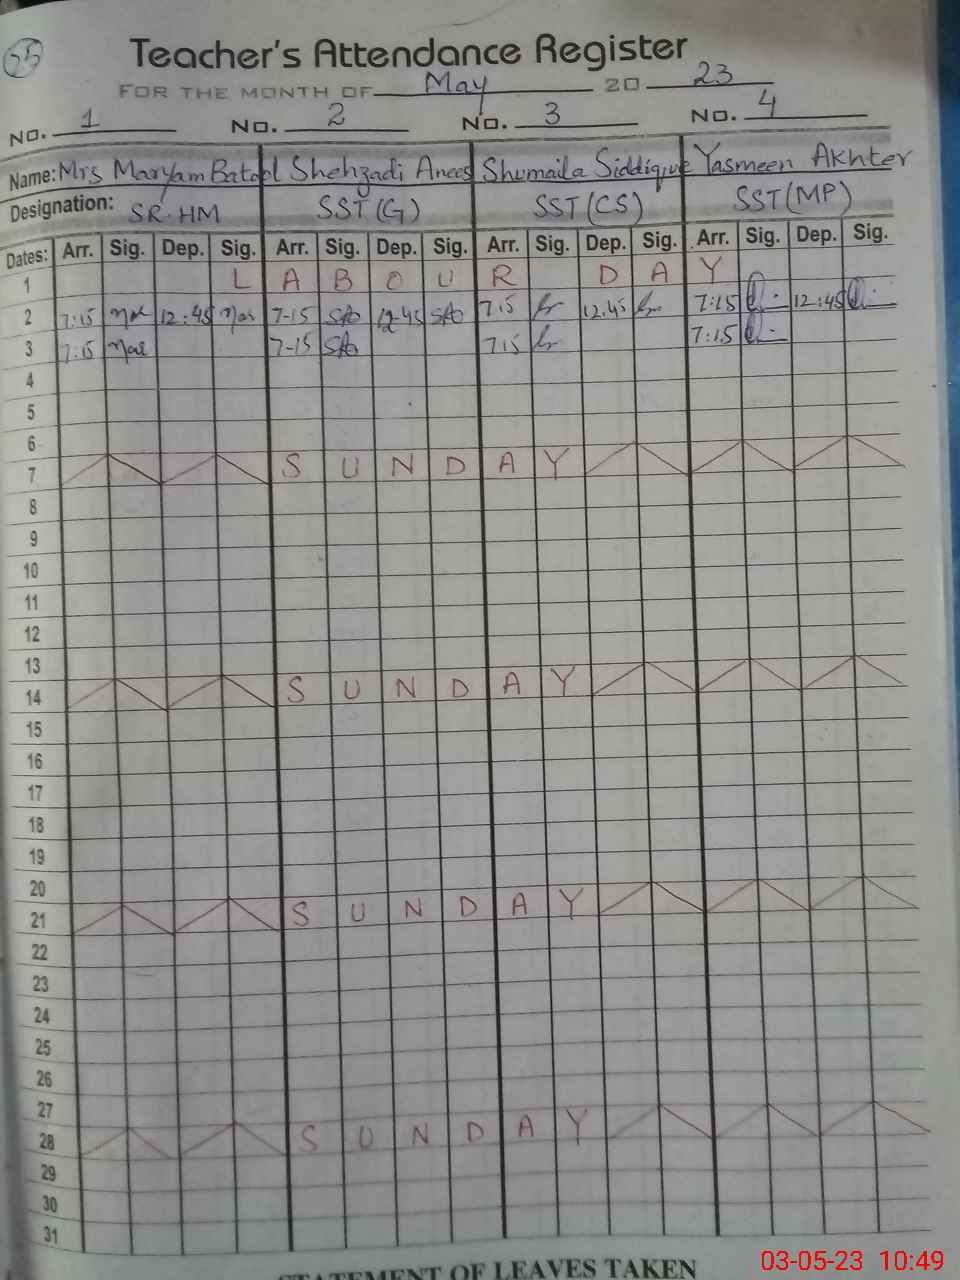 25
Teacher's Attendance Register
FOR THE MONTH OF May 20 23
NO. 1 NO. 2 NO. 3 NO. 4
Name: Mrs Maryam Batool Shehzadi Anees Shumaila Siddique Yasmeen Akhter
Designation: SR.HM SST (G) SST (CS) SST (MP)
Dates: Arr. Sig. Dep. Sig. Arr. Sig. Dep. Sig. Arr. Sig. Dep. Sig. Arr. Sig. Dep. Sig.
1 L A B O U R D A Y
2 7:15 12:45 7-15 12-45 7.15 12.45 7:15 12:45
3 7:15 7-15 7.15 7:15
4
5
6
7 S U N D A Y
8
9
10
11
12
13
14 S U N D A Y
15
16
17
18
19
20
21 S U N D A Y
22
23
24
25
26
27
28 S U N D A Y
29
30
31
STATEMENT OF LEAVES TAKEN
03-05-23 10:49